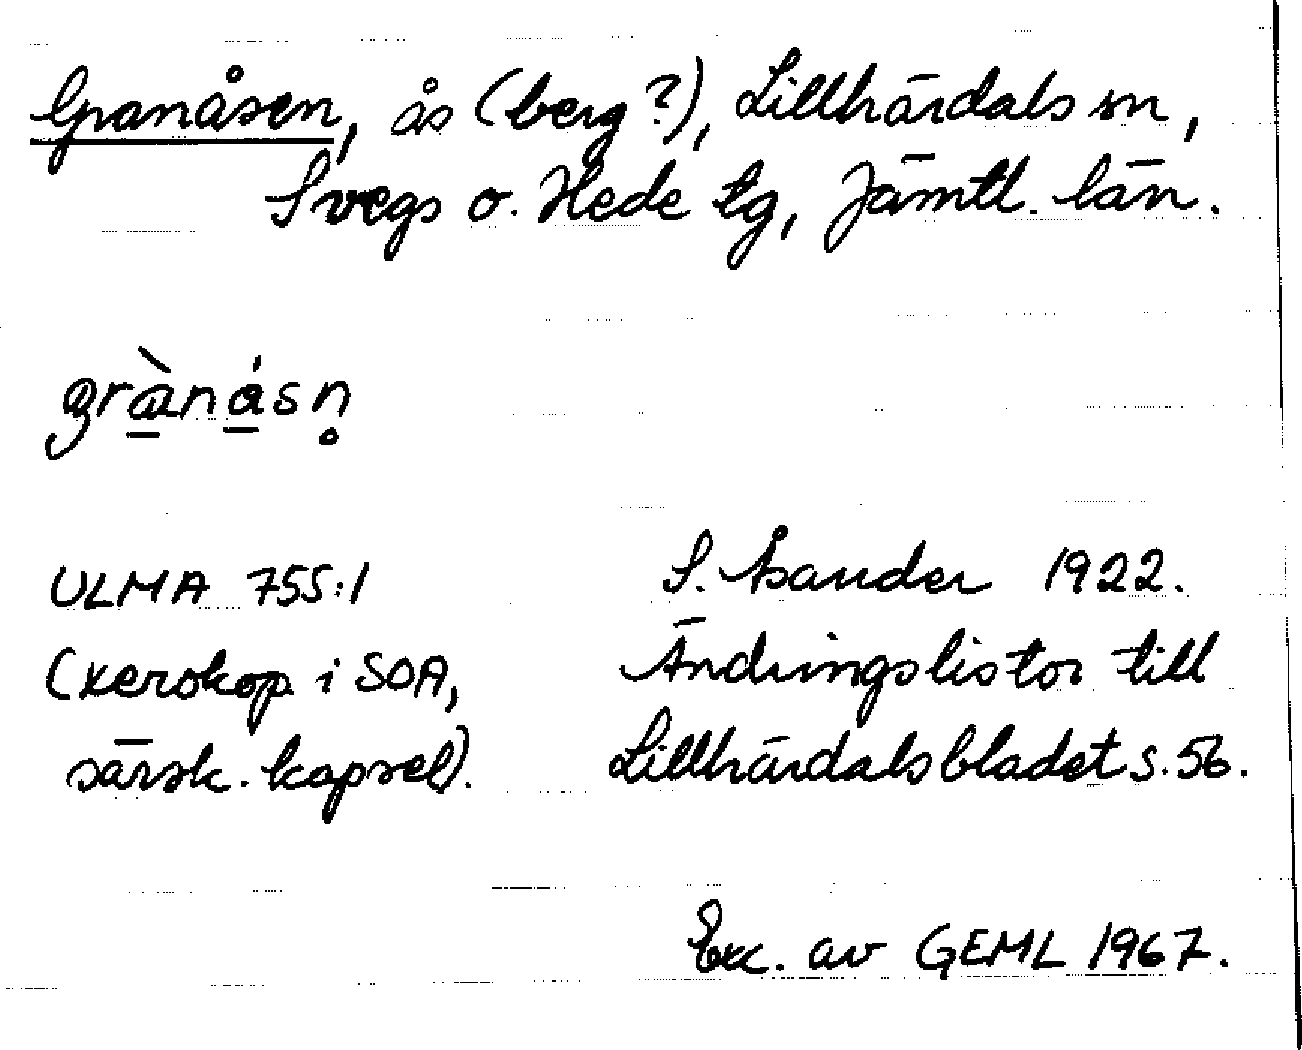 Granåsen, ås (berg?), Lillhärdals sn,
Svegs o. Hede tg, Jämtl. län.
grànásn̥
ULMA 755:1 S. Åsander 1922.
(xerokop i SOA, Ändringslistor till
särsk. kapsel). Lillhärdalsbladet s. 56.
Exc. av GEML 1967.